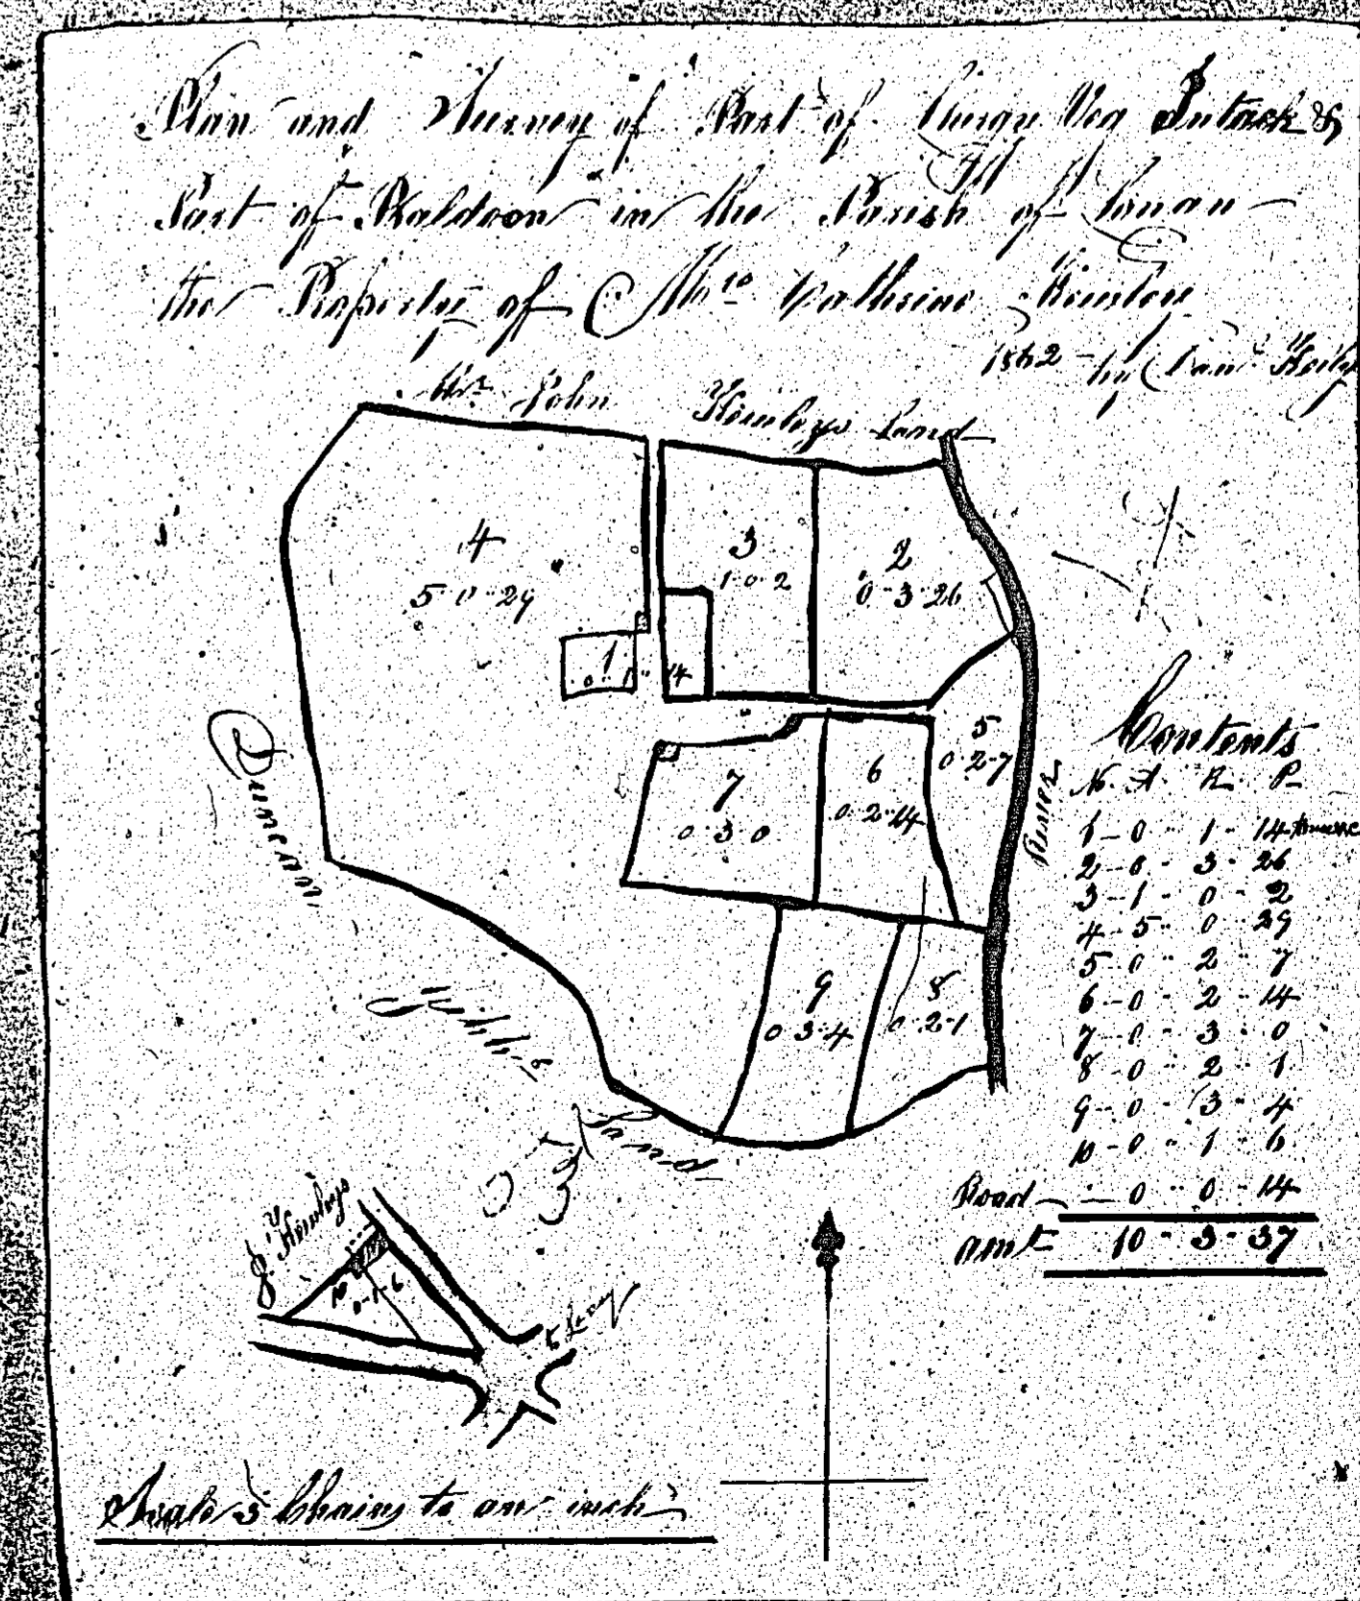 Plan and Survey of Part of Intack &
Part of Baldoon in the Parish of Lonan
the Property of Mrs Catherine
by
Mr John Land
4
5 0 29
3
1 0 2
2
0 3 26
1
0 1 14
5
0 2 7
6
0 2 14
7
0 3 0
9
0 3 4
8
0 2 1
River
Duncan
Gibb's
Land
J
10
0-1-6
to Laxey
Contents
No. A R P
1 - 0 - 1 - 14
2 - 0 - 3 - 26
3 - 1 - 0 - 2
4 - 5 - 0 - 29
5 - 0 - 2 - 7
6 - 0 - 2 - 14
7 - 0 - 3 - 0
8 - 0 - 2 - 1
9 - 0 - 3 - 4
10 - 0 - 1 - 6
Road - 0 - 0 - 14
amt 10 - 3 - 37
Scale 3 Chains to an inch